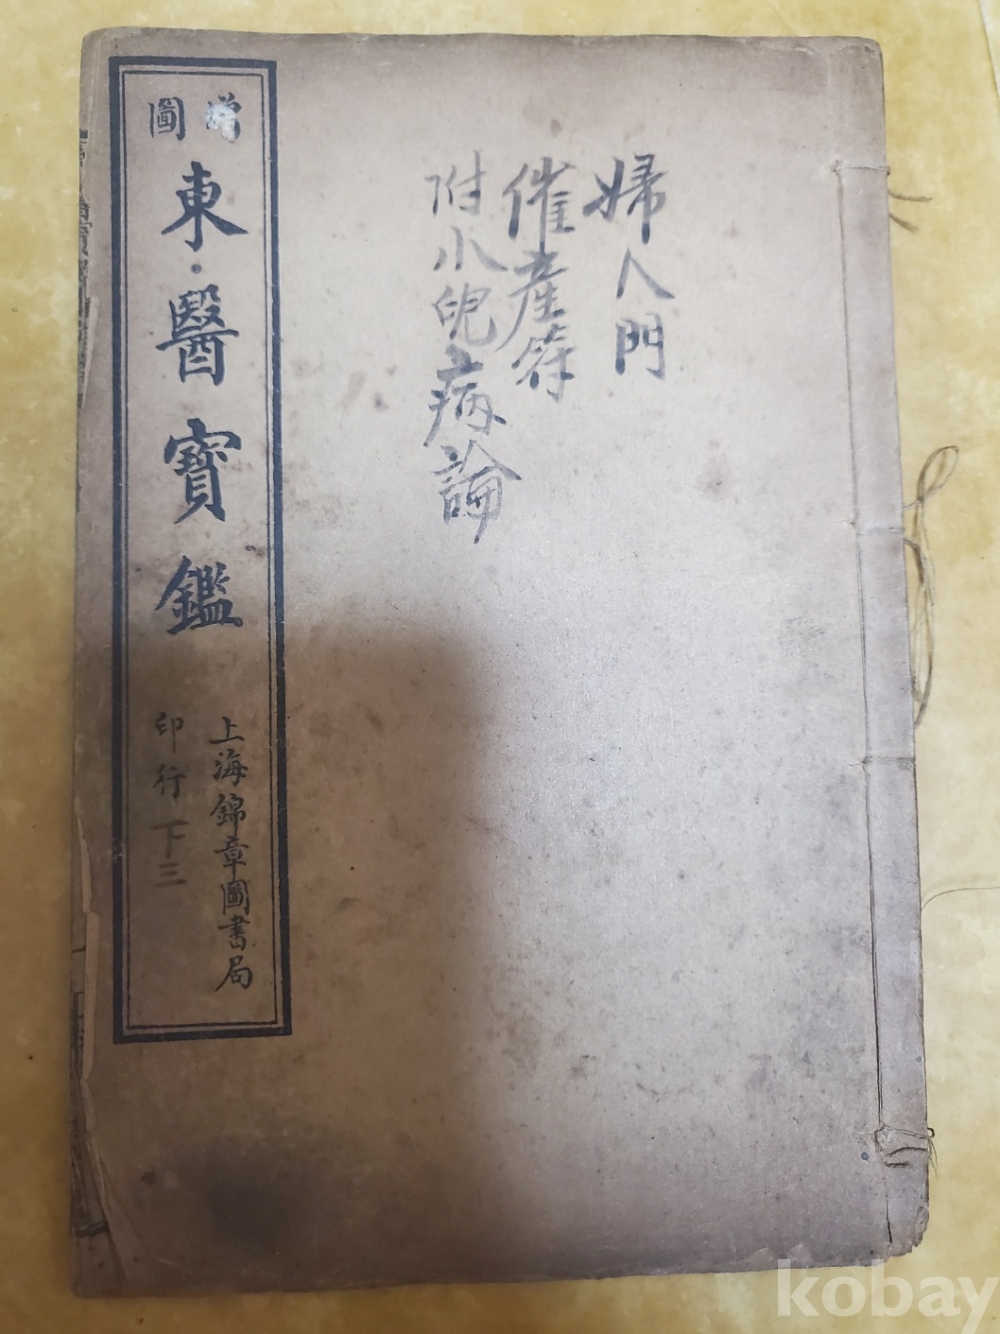 婦人門
催產符
附小兒病論
增圖
東·醫寶鑑
上海錦章圖書局
印行 下三
kobay